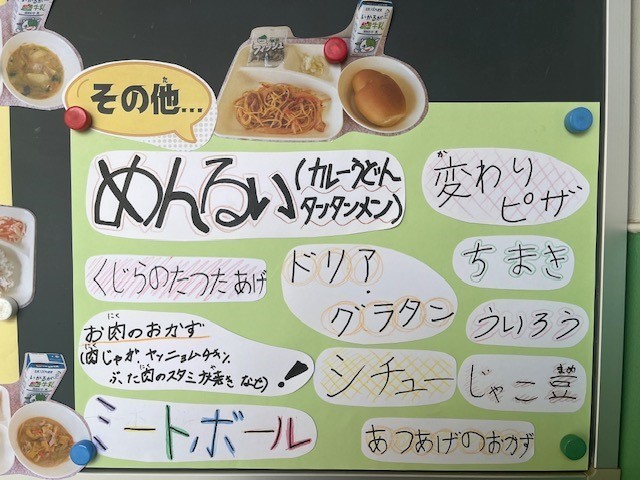 その他...
た
めんるい
(カレーうどん
タンタンメン)
変わり
か
ピザ
くじらのたつたあげ
ドリア・
グラタン
ちまき
ういろう
お肉のおかず
にく
(肉じゃが、ヤンニョムチキン、
にく
ぶた肉のスタミナ焼き など)
にく
!
シチュー
じゃこ豆
まめ
ミートボール
あつあげのおかず
いかるが
牛乳